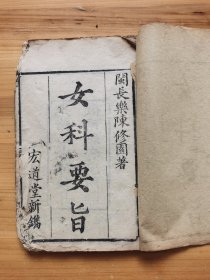 閩長樂陳修園著
女科要旨
宏道堂新鐫